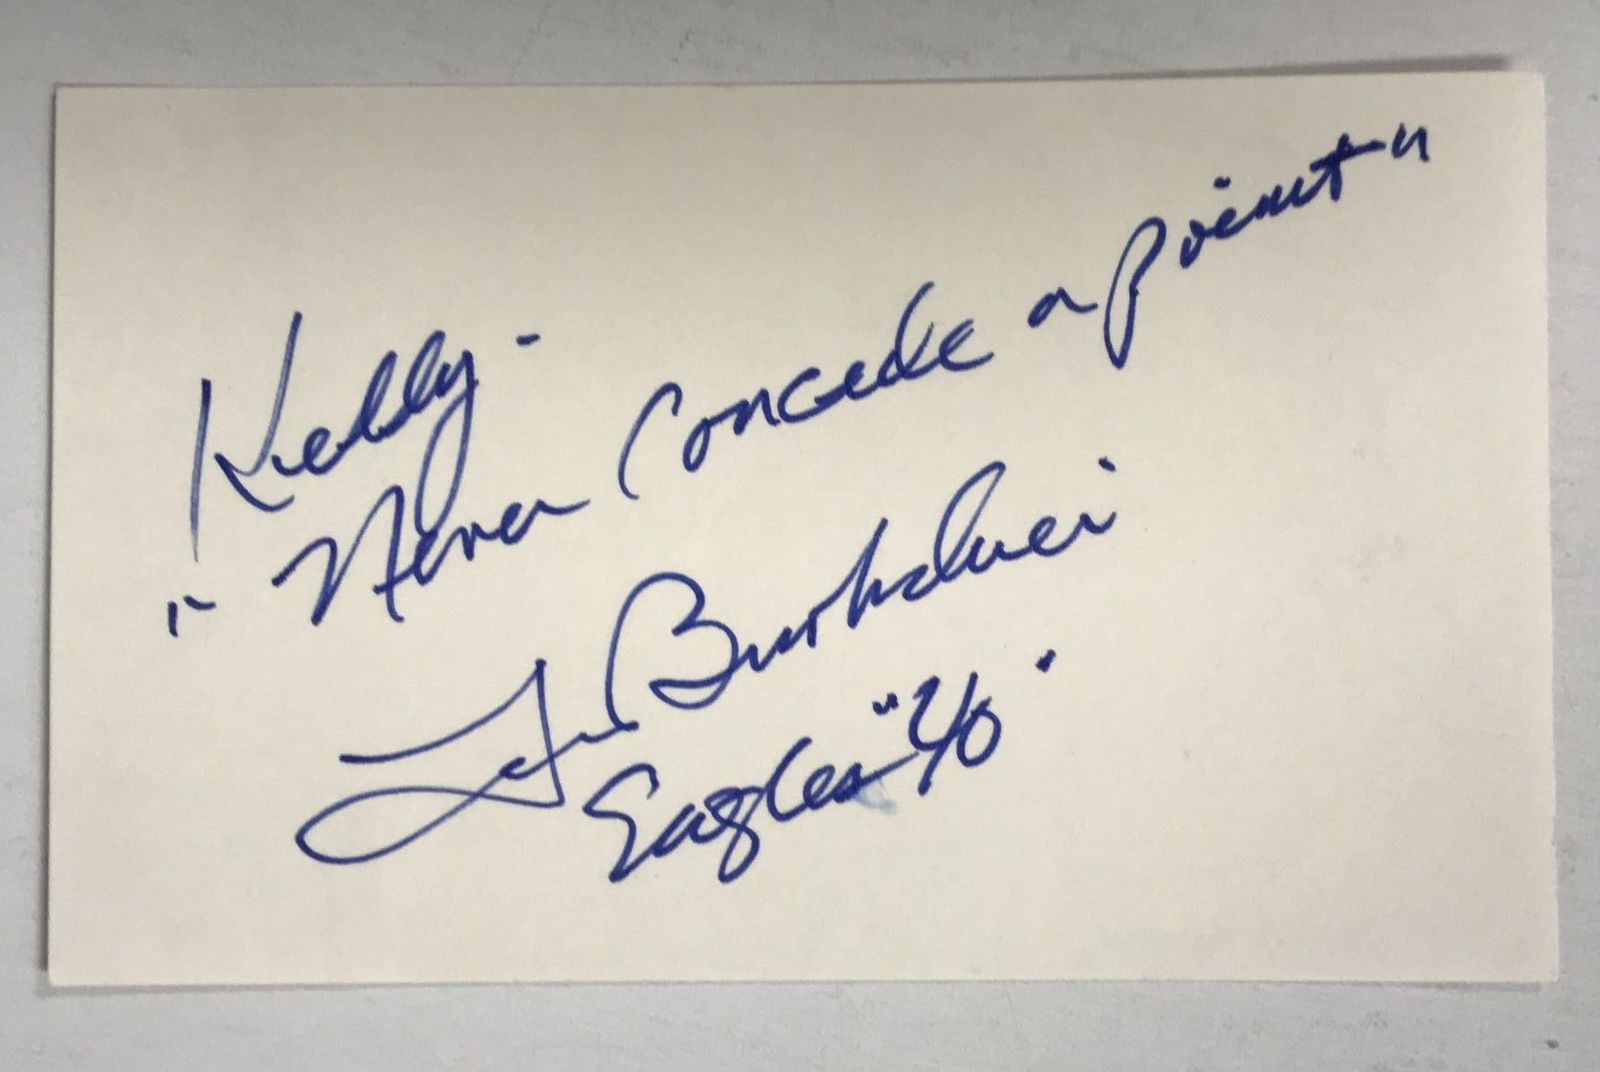 Kelly -
"Never Concede a point"
Lou Burkholuei
Eagles "40"